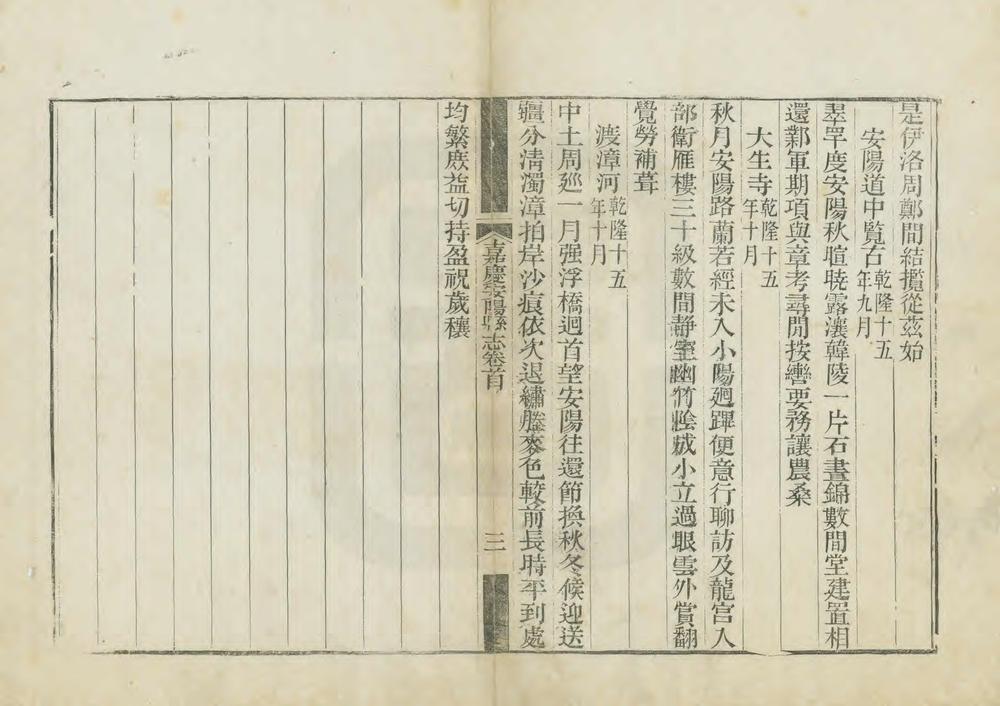 是伊洛周鄭間結攬從茲始
安陽道中覧古乾隆十五年九月
翠罕度安陽秋暄曉露瀼韓陵一片石晝錦數間堂建置相
還鄴軍期項與章考尋閒按轡要務讓農桑
大生寺乾隆十五年十月
秋月安陽路蘭若經未入小陽廻蹕便意行聊訪及龍宮人
部衛雁樓三十級數間靜室幽竹陰戚小立過眼雲外賞翻
覺勞補葺
渡漳河乾隆十五年十月
中土周廵一月强浮橋迴首望安陽往還節換秋冬候迎送
疆分清濁漳拍岸沙痕依次退繡塍麥色較前長時平到處
嘉慶安陽縣志卷首
三
均繁庶益切持盈祝歲穰